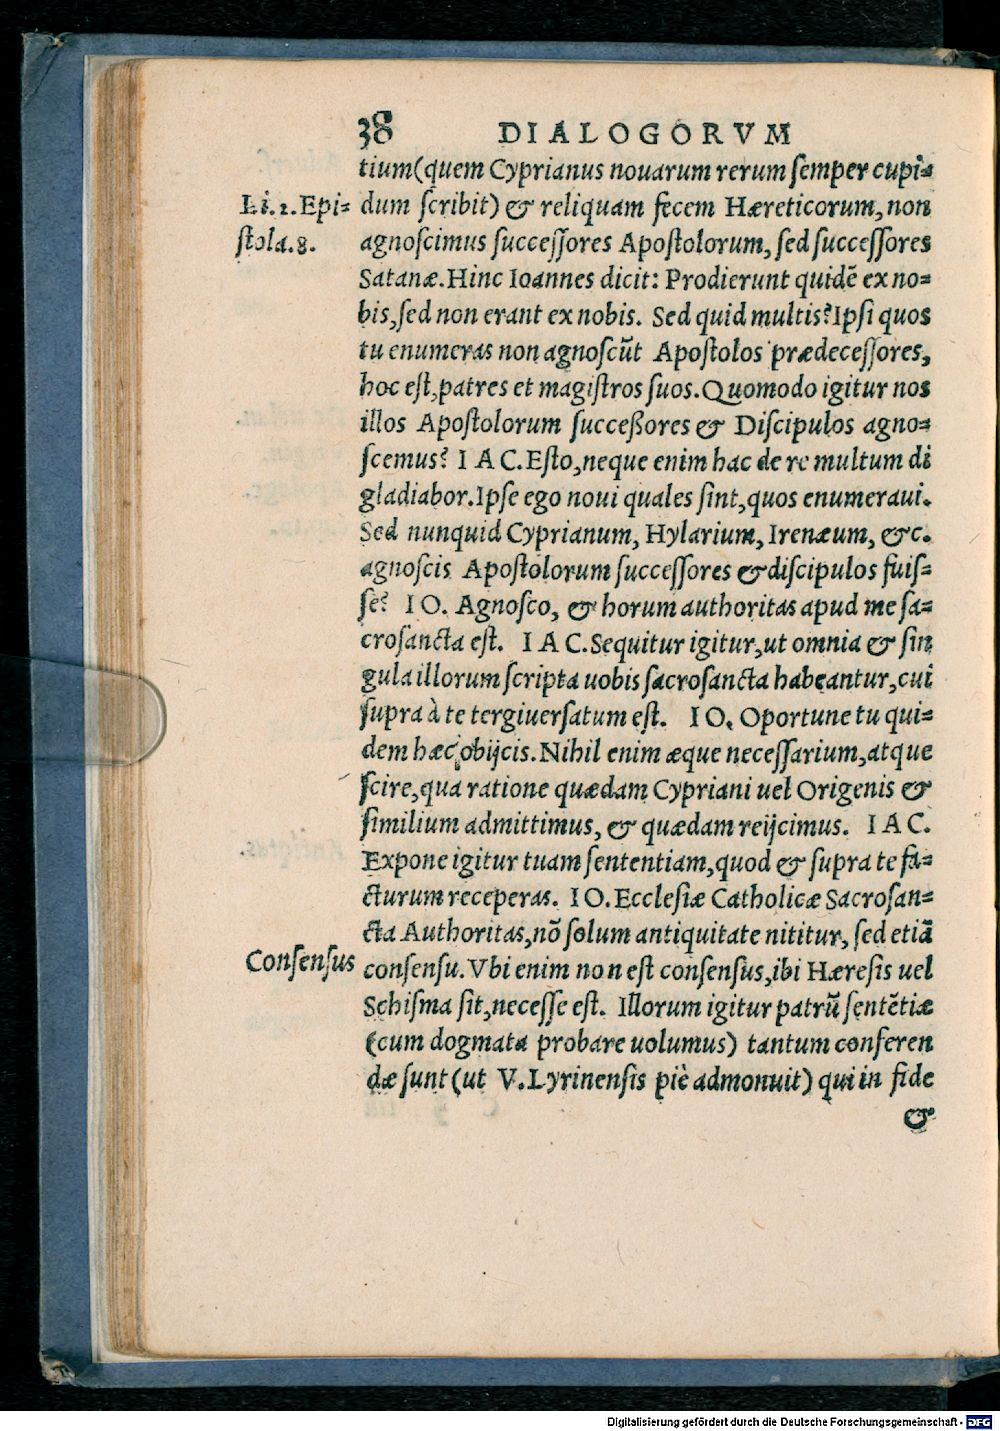 38 DIALOGORVM
tium (quem Cyprianus nouarum rerum semper cupi=
Li.2.Epi= dum scribit) & reliquam fecem Hæreticorum, non
stola.8. agnoscimus successores Apostolorum, sed successores
Satanæ. Hinc Ioannes dicit: Prodierunt quidē ex no=
bis, sed non erant ex nobis. Sed quid multis? Ipsi quos
tu enumeras non agnoscūt Apostolos prædecessores,
hoc est, patres et magistros suos. Quomodo igitur nos
illos Apostolorum succeßores & Discipulos agno=
scemus? IAC. Esto, neque enim hac de re multum di
gladiabor. Ipse ego noui quales sint, quos enumeraui.
Sed nunquid Cyprianum, Hylarium, Irenæum, &c.
agnoscis Apostolorum successores & discipulos fuis=
se? IO. Agnosco, & horum authoritas apud me sa=
crosancta est. IAC. Sequitur igitur, ut omnia & sin
gula illorum scripta uobis sacrosancta habeantur, cui
supra à te tergiuersatum est. IO. Oportune tu qui=
dem hæc obijcis. Nihil enim æque necessarium, atque
scire, qua ratione quædam Cypriani uel Origenis &
similium admittimus, & quædam reijcimus. IAC.
Expone igitur tuam sententiam, quod & supra te fa=
cturum receperas. IO. Ecclesiæ Catholicæ Sacrosan=
cta Authoritas, nō solum antiquitate nititur, sed etiā
Consensus consensu. Vbi enim non est consensus, ibi Hæresis uel
Schisma sit, necesse est. Illorum igitur patrū sentētiæ
(cum dogmata probare uolumus) tantum conferen
dæ sunt (ut V. Lyrinensis piè admonuit) qui in fide
&
Digitalisierung gefördert durch die Deutsche Forschungsgemeinschaft - DFG